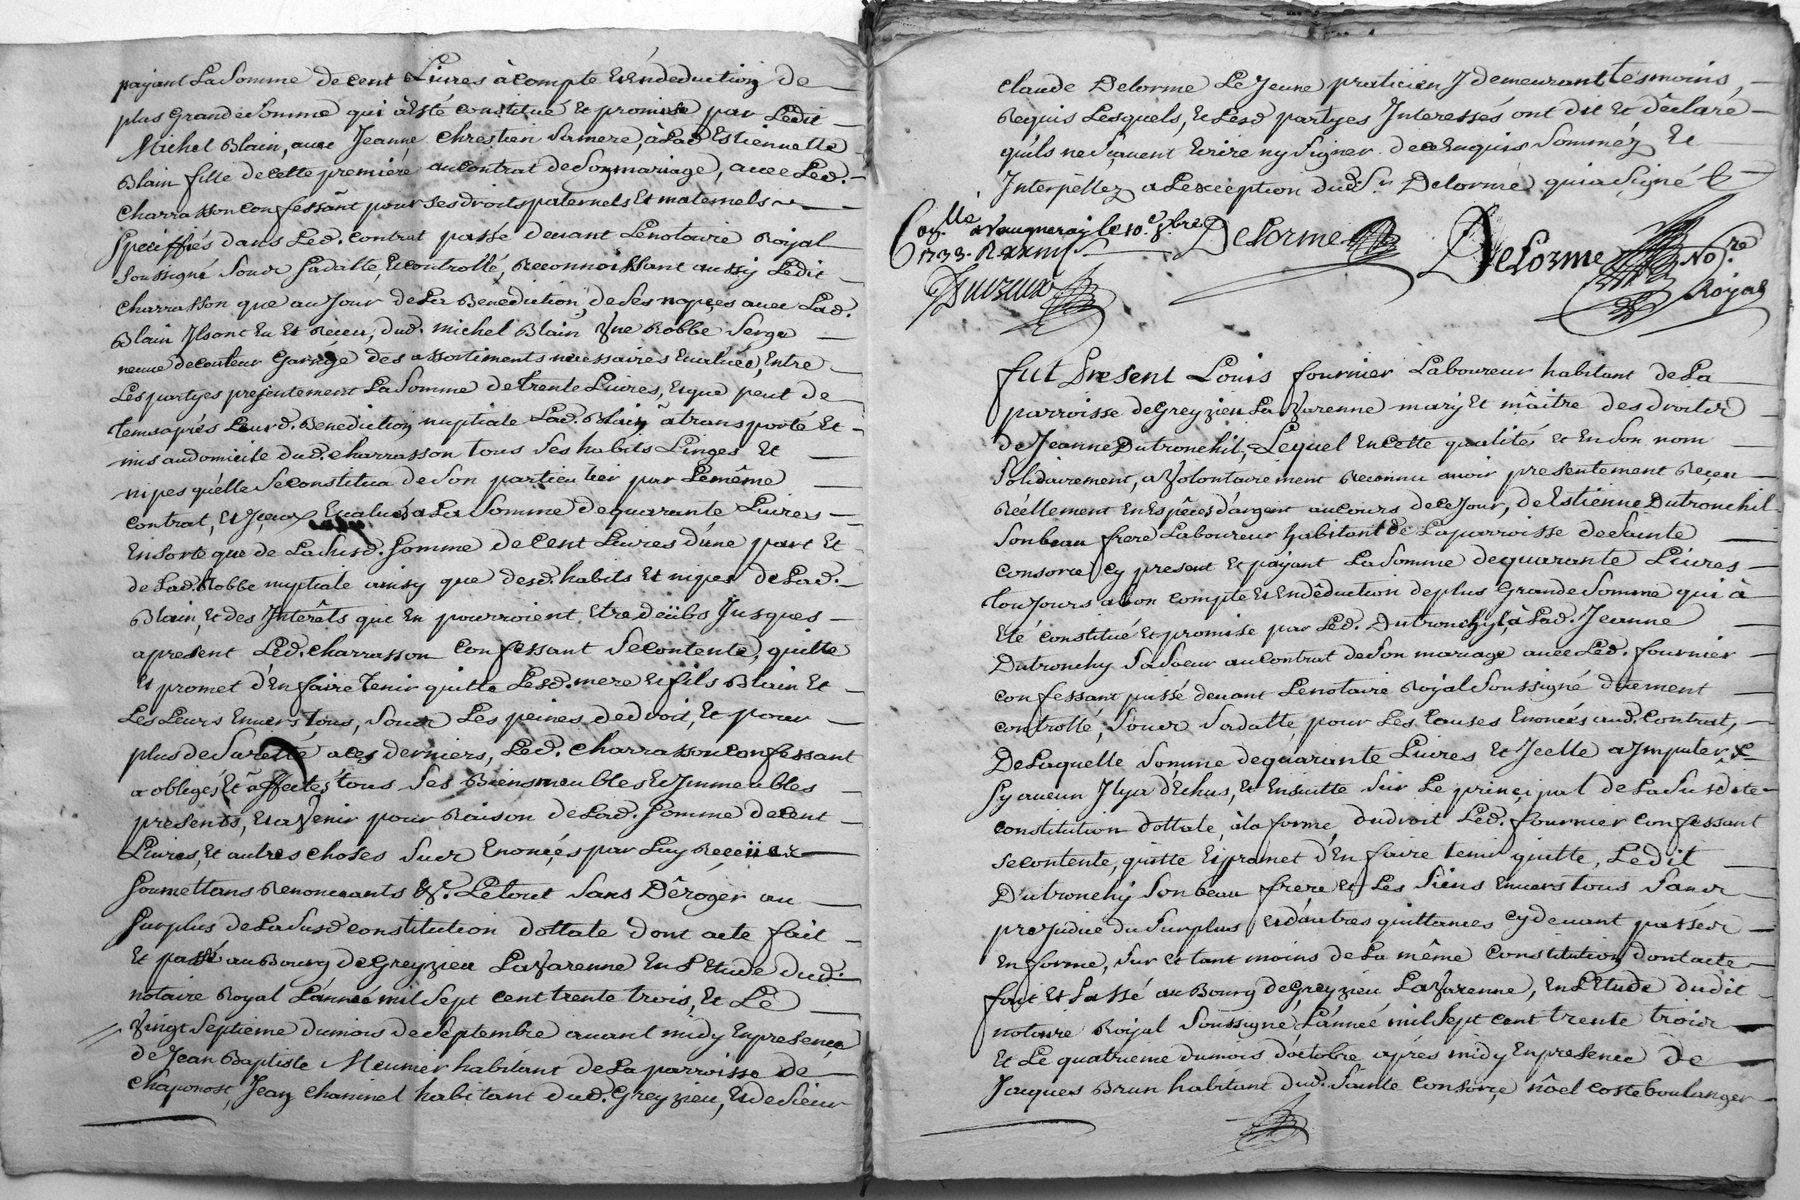 payant La Somme de cent Livres à compte et én deduction de
plus Grande Somme qui à Esté constitué et promise par Ledit
Michel Blain, avec Jeanne Chrestien Sa mere, à Lad. Estiennette
Blain fille de cette premiére au contrat de Son mariage, avec Led.
Charrasson confessant pour ses droits paternels Et maternels
Speciffiés dans Led. contrat passé devant Le notaire Royal
Soussigné Sour Sa datte, Et controllé, Reconnoissant aussy Ledit
Charrasson que au Jour de La Benediction, de Ses nopçes avec Lad.
Blain Il sont Eu et Receu, dud. michel Blain Une Robbe Serge
neuve de couleur Garnye des assortiments necessaires Evaluée, Entre
Les partyes presentement La Somme de trente Livres, Et que peut de
tems aprés Leurd. Benediction nuptiale Lad. Blain à transporté Et
mis au domicile dud. Charrasson tous Ses habits Linges Et
nipes qu'elle Se constitua de Son particulier par Le même
contrat, Et Iceux Evalués a La Somme de quarante Livres
En Sorte que de La Susd. Somme de cent Livres d'une part Et
de Lad. Robbe nuptiale ainsy que desd. habits Et nipes de Lad.
Blain, Et des Intérêts qui En pourroient Etre deübs Jusques
a present Led. Charrasson confessant Se contente, quitte
Et promet d'En faire tenir quitte Lesd. mere Et fils Blain Et
Les Leurs Envers tous, Sour Les peines de droit, Et pour
plus de Suretté a ces derniers, Led. Charrasson confessant
a obligés Et affectés tous Ses Biens meubles Et Immeubles
presents, Et a Venir pour Raison de Lad. Somme de Cent
Livres, Et autres choses Susr Enonçées par Luy Reçeües
Soumettans Renoncants &c. Le tout Sans Dêroger au
Surplus de La Susd constitution dottale dont acte fait
Et passé au Bourg de Greyzieu La Varenne En L'Etude dud.
notaire Royal L'année mil Sept cent trente trois, Et Le
Vingt Septieme du mois de Septembre avant midy En presence
de Jean Baptiste Meunier habitant de La parroisse de
Chaponost, Jean Chaminel habitant dud. Greyzieu, Et de Sieur
Claude Delorme Le Jeune praticien Y demeurant tesmoins,
Requis Lesquels, Et Lesd. partyes Interessés ont dit Et déclaré
qu'ils ne Sçavent Ecrire ny Signer de ce Enquis Sommés Et
Interpéllez a L'exception dud. Sr. Delorme qui a Signé
Conllé a Vaugneray le 10e 8bre
1733. R
Delorme
Delorme Nore.
Royal
Fut Present Louis fournier Laboureur habitant de La
parroisse de Greyzieu La Varenne mary Et mâitre des droits
de Jeanne Dutronchil, Lequel En cette qualités et En Son nom
Solidairement, a Volontairement Reconnu avoir presentement Reçeu
Réellement En Espêces d'argent au cours de ce Jour, de Estienne Dutronchil
Son beau frere Laboureur habitant de La parroisse de Sainte
Consorce cy present Et payant La Somme de quarante Livres
toujours a bon compte Et En déduction de plus Grande Somme qui à
Eté constitué Et promise par Led. Dutronchyl, à Lad. Jeanne
Dutronchy Sa Soeur au contrat de Son mariage avec Led. fournier
confessant passé devant Le notaire Royal Soussigné duement
controllé, Sour Sa datte, pour Les Causes Enoncés aud. Contrat,
De Laquelle Somme de quarante Livres Et Icelle a Imputer
Sy aucun Il y a d'Echus, Et Ensuitte Sur Le principal de La Susdite
constitution dottale, à la forme du droit Led. fournier confessant
se contente, quitte Et promet d'En faire tenir quitte, Ledit
Dutronchy Son beau frere Et Les Siens Envers tous Sans
prejudice du Surplus Et d'autres quittances cy devant passées
En forme, Sur Et tant moins de La même constitution dont acte
fait Et Passé au Bourg de Greyzieu La Varenne, En L'Etude dudit
notaire Royal Soussigné L'année mil Sept cent trente trois
Et Le quatrieme du mois d'octobre aprés midy En presence de
Jacques Brun habitant dud. Sainte Consorce, nôel coste boulanger